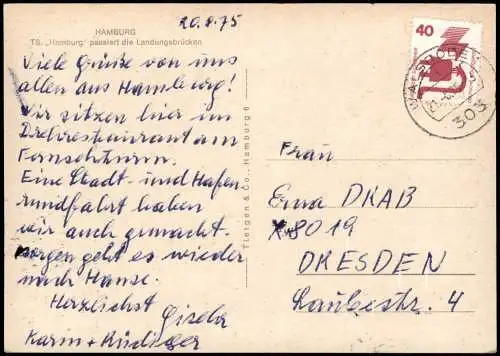 20.8.75
HAMBURG
TS. „Hamburg" passiert die Landungsbrücken
Viele Grüße von uns
allen aus Hamburg!
Wir sitzen hier im
Drehrestaurant am
Fernsehturm.
Eine Stadt- und Hafen-
rundfahrt haben
wir auch gemacht.
Morgen geht es wieder
nach Hause.
Herzlichst
Gisela
Karin + Rüdiger
Tietgen & Co., Hamburg 6
40
303
Frau
Erna DRAB
X 8019
DRESDEN
Laubestr. 4